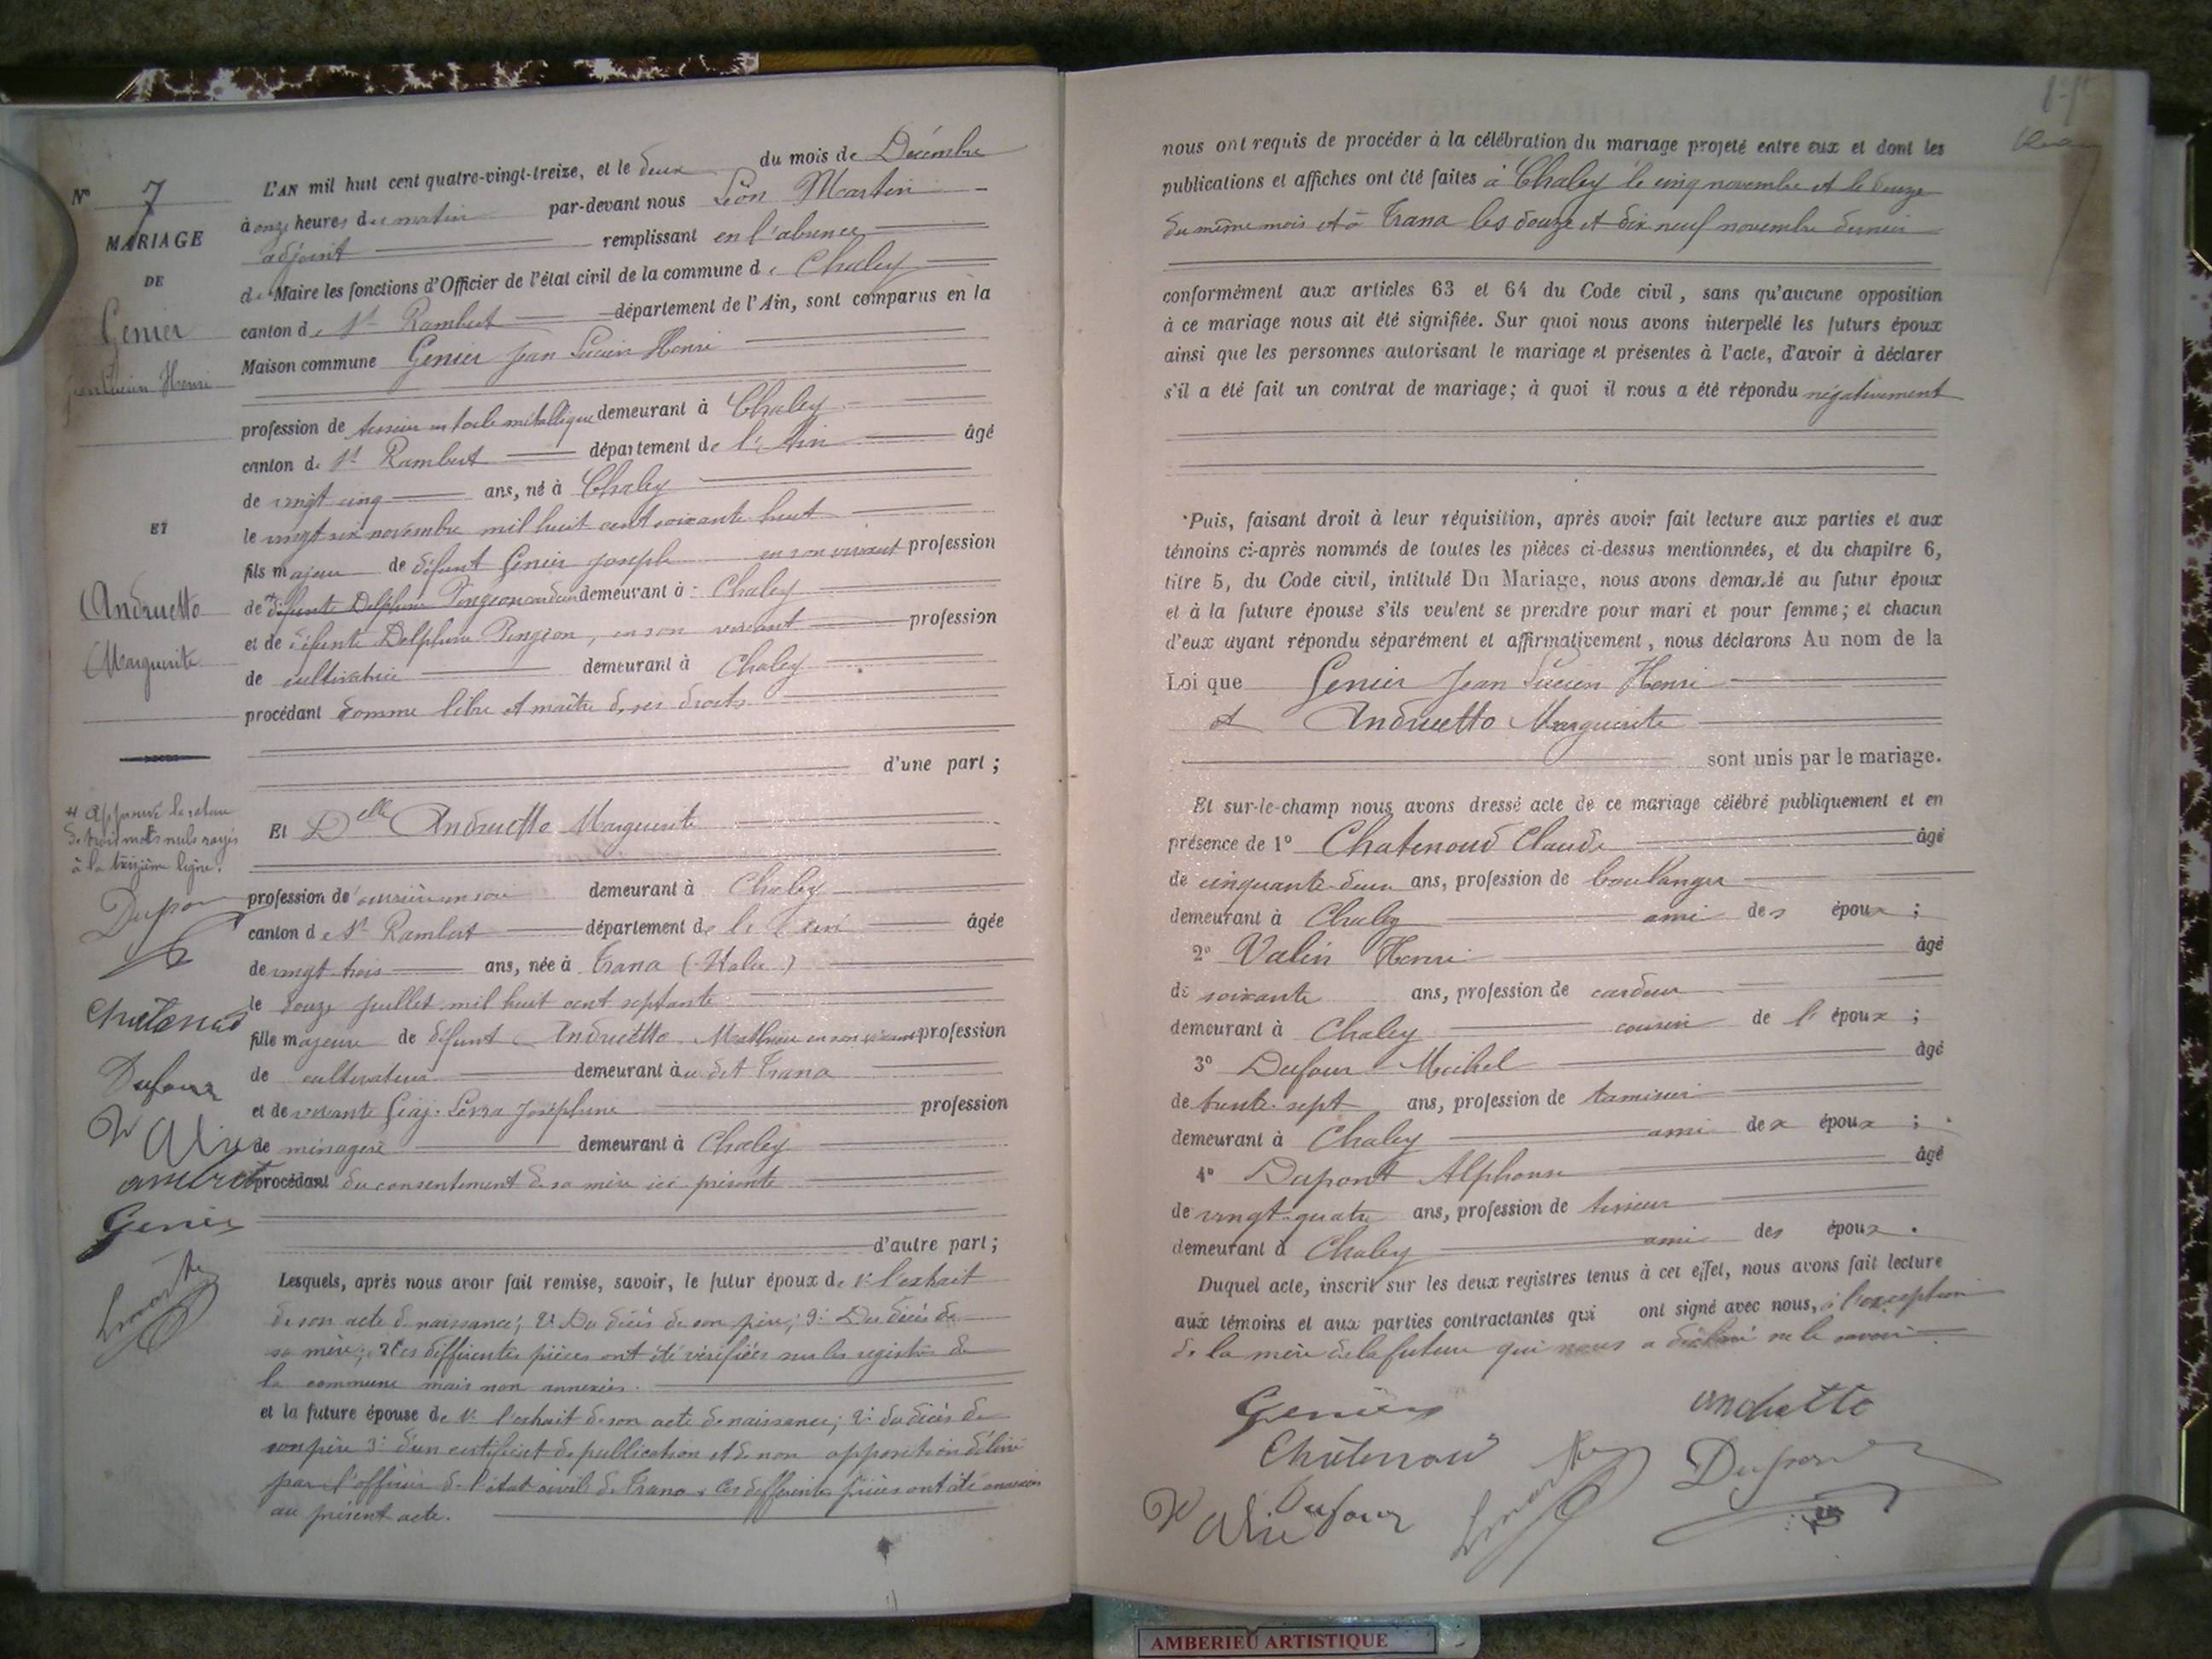 N° 7
MARIAGE
DE
Genier
Jean Lucien Henri
ET
Andruetto
Marguerite
# Approuvé la rature
de trois mots nuls rayés
à la treizième ligne.
Dupon
Chatenoud
Dufour
Genier
L'AN mil huit cent quatre-vingt-treize, et le deux du mois de Décembre
à onze heures du matin par-devant nous Léon Martin
adjoint remplissant en l'absence
du Maire les fonctions d'Officier de l'état civil de la commune de Chaley
canton de St Rambert département de l'Ain, sont comparus en la
Maison commune Genier Jean Lucien Henri
profession de tisseur en toile métallique demeurant à Chaley
canton de St Rambert département de l'Ain âgé
de vingt cinq ans, né à Chaley
le vingt six novembre mil huit cent soixante huit
fils majeur de défunt Genier Joseph en son vivant profession
de défunte Delphine Pingeon demeurant à Chaley
et de défunte Delphine Pingeon, en son vivant profession
de cultivatrice demeurant à Chaley
procédant comme libre et maître de ses droits
d'une part ;
Et Delle Andruetto Marguerite
profession de ouvrière en soie demeurant à Chaley
canton de St Rambert département de l'Ain âgée
de vingt trois ans, née à Trana (Italie)
le douze juillet mil huit cent septante
fille majeure de défunt Andruetto Mathieu en son vivant profession
de cultivateur demeurant au dit Trana
et de vivante Joséphine profession
de ménagère demeurant à Chaley
procédant du consentement de sa mère ici présente
d'autre part ;
Lesquels, après nous avoir fait remise, savoir, le futur époux de 1° l'extrait
de son acte de naissance ; 2° Du décès de son père ; 3° Du décès de
sa mère ; Ces différentes pièces ont été vérifiées sur les registres de
la commune mais non annexées.
et la future épouse de 1° l'extrait de son acte de naissance ; 2° du décès de
son père 3° d'un certificat de publication et de non opposition délivré
par l'officier de l'état civil de Trana. Ces différentes pièces ont été annexées
au présent acte.
nous ont requis de procéder à la célébration du mariage projeté entre eux et dont les
publications et affiches ont été faites à Chaley le cinq novembre et le douze
du même mois et à Trana les douze et dix neuf novembre dernier
conformément aux articles 63 et 64 du Code civil, sans qu'aucune opposition
à ce mariage nous ait été signifiée. Sur quoi nous avons interpellé les futurs époux
ainsi que les personnes autorisant le mariage et présentes à l'acte, d'avoir à déclarer
s'il a été fait un contrat de mariage ; à quoi il nous a été répondu négativement
Puis, faisant droit à leur réquisition, après avoir fait lecture aux parties et aux
témoins ci-après nommés de toutes les pièces ci-dessus mentionnées, et du chapitre 6,
titre 5, du Code civil, intitulé Du Mariage, nous avons demandé au futur époux
et à la future épouse s'ils veulent se prendre pour mari et pour femme ; et chacun
d'eux ayant répondu séparément et affirmativement, nous déclarons Au nom de la
Loi que Genier Jean Lucien Henri
et Andruetto Marguerite
sont unis par le mariage.
Et sur-le-champ nous avons dressé acte de ce mariage célébré publiquement et en
présence de 1° Chatenoud Claude âgé
de cinquante-deux ans, profession de boulanger
demeurant à Chaley ami des époux ;
2° Valin Henri âgé
de soixante ans, profession de cardeur
demeurant à Chaley cousin de l'époux ;
3° Dufour Michel âgé
de trente-sept ans, profession de tamisier
demeurant à Chaley ami des époux ;
4° Dupont Alphonse âgé
de vingt-quatre ans, profession de tisseur
demeurant à Chaley ami des époux.
Duquel acte, inscrit sur les deux registres tenus à cet effet, nous avons fait lecture
aux témoins et aux parties contractantes qui ont signé avec nous, à l'exception
de la mère de la future qui nous a déclaré ne le savoir
Genier
Chatenoud
Dufour
Dupon
AMBERIEU ARTISTIQUE